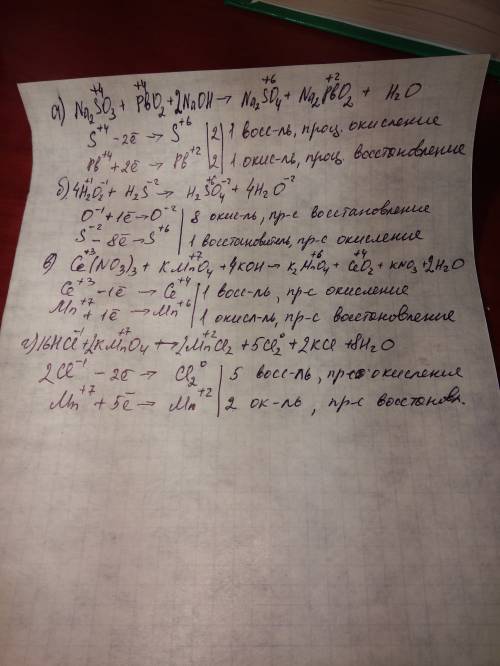 а) Na₂S⁺⁴O₃ + Pb⁺⁴O₂ + 2NaOH → Na₂S⁺⁶O₄ + Na₂Pb⁺²O₂ + H₂O
S⁺⁴ - 2ē → S⁺⁶ | 2 | 1 восс-ль, проц. окисление
Pb⁺⁴ + 2ē → Pb⁺² | 2 | 1 окис-ль, проц. восстановление
б) 4H₂⁺¹O₂⁻¹ + H₂S⁻² → H₂S⁺⁶O₄⁻² + 4H₂O⁻²
O⁻¹ + 1ē → O⁻² | 8 окис-ль, пр-с восстановление
S⁻² - 8ē → S⁺⁶ | 1 восстановитель, пр-с окисления
в) Ce⁺³(NO₃)₃ + KMn⁺⁷O₄ + 4KOH → K₂Mn⁺⁶O₄ + Ce⁺⁴O₂ + KNO₃ + 2H₂O
Ce⁺³ - 1ē → Ce⁺⁴ | 1 восс-ль, пр-с окисления
Mn⁺⁷ + 1ē → Mn⁺⁶ | 1 окисл-ль, пр-с восстановления
г) 16HCl⁻¹ + 2KMn⁺⁷O₄ → 2Mn⁺²Cl₂ + 5Cl₂⁰ + 2KCl + 8H₂O
2Cl⁻¹ - 2ē → Cl₂⁰ | 5 восс-ль, пр-с окисления
Mn⁺⁷ + 5ē → Mn⁺² | 2 ок-ль, пр-с восстановл.